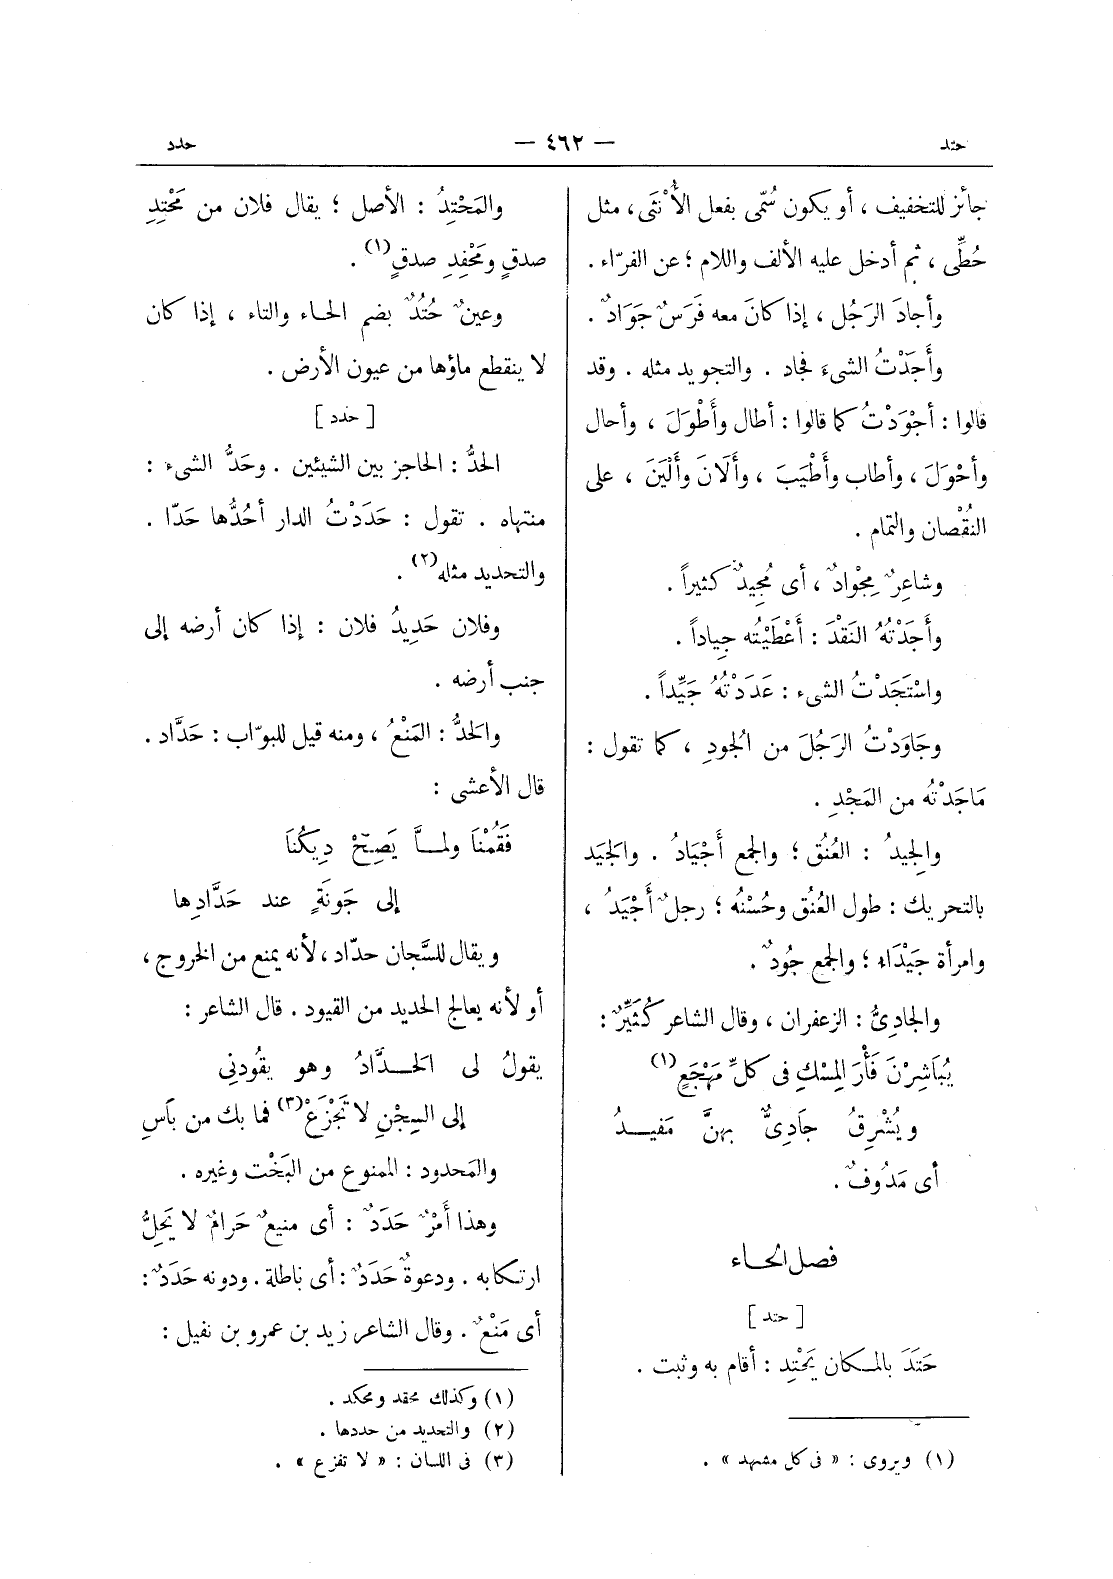 حتد
— ٤٦٢ —
حدد
جائز للتخفيف ، أو يكون سُمّى بفعل الأُنْثَى ، مثل
حُطِّى ، ثم أدخل عليه الألف واللام ؛ عن الفرّاء .
وأجادَ الرَجُل ، إذا كانَ معه فَرَسٌ جَوَادٌ .
وأَجَدْتُ الشىءَ فجاد . والتجويد مثله . وقد
قالوا : أجْوَدْتُ كما قالوا : أطال وأَطْوَلَ ، وأحال
وأحْوَلَ ، وأطاب وأَطْيَبَ ، وأَلَانَ وأَلْيَنَ ، على
النُقْصان والتمام .
وشاعِرٌ مِجْوادٌ ، أى مُجِيدٌ كثيراً .
وأَجَدْتُهُ النَقْدَ : أَعْطَيْتُه جِياداً .
واسْتَجَدْتُ الشىء : عَدَدْتُهُ جَيِّداً .
وجَاوَدْتُ الرَجُلَ من الجُودِ ، كما تقول :
مَاجَدْتُه من المَجْدِ .
والجِيدُ : العُنُق ؛ والجمع أَجْيَادُ . والجَيَد
بالتحريك : طول العُنُق وحُسْنُه ؛ رجلٌ أَجْيَدُ ،
وامرأة جَيْدَاء ؛ والجمع جُودٌ .
والجادِىُّ : الزعفران ، وقال الشاعر كُثَيِّرٌ :
يُبَاشِرْنَ فَأْرَ المِسْكِ فى كلِّ مَهْجَعٍ (١)
ويُشْرِقُ جَادِىٌّ بهنَّ مَفيـدُ
أى مَدُوفٌ .
فصل الحـاء
[ حتد ]
حَتَدَ بالمـكان يَحْتِد : أقام به وثبت .
(١) ويروى : « فى كل مشهد » .
والمَحْتِدُ : الأصل ؛ يقال فلان من مَحْتِدِ
صدقٍ ومَحْفِدِ صدقٍ (١) .
وعينٌ حُتُدٌ بضم الحـاء والتاء ، إذا كان
لا ينقطع ماؤها من عيون الأرض .
[ حدد ]
الحدُّ : الحاجز بين الشيئين . وحَدُّ الشىء :
منتهاه . تقول : حَدَدْتُ الدار أحُدُّها حَدّا .
والتحديد مثله (٢) .
وفلان حَدِيدُ فلان : إذا كان أرضه إلى
جنب أرضه .
والحَدُّ : المَنْعُ ، ومنه قيل للبوّاب : حَدَّاد .
قال الأعشى :
فَقُمْنَا ولمـا يَصِحْ دِيكُنَا
إلى جَونَةٍ عند حَدَّادِها
ويقال للسَّجان حدّاد ، لأنه يمنع من الخروج ،
أو لأنه يعالج الحديد من القيود . قال الشاعر :
يقولُ لى الحَـدَّادُ وهو يقُودنِى
إلى السِجْنِ لا تَجْزَعْ (٣) فما بك من بَأسِ
والمَحدود : الممنوع من البَخْت وغيره .
وهذا أَمْرٌ حَدَدٌ : أى منيعٌ حَرامٌ لا يَحِلُّ
ارتكابه . ودعوةٌ حَدَدٌ : أى باطلة . ودونه حَدَدٌ :
أى مَنْعٌ . وقال الشاعر زيد بن عمرو بن نفيل :
(١) وكذلك محقد ومحكد .
(٢) والتحديد من حددها .
(٣) فى اللسان : « لا تفزع » .